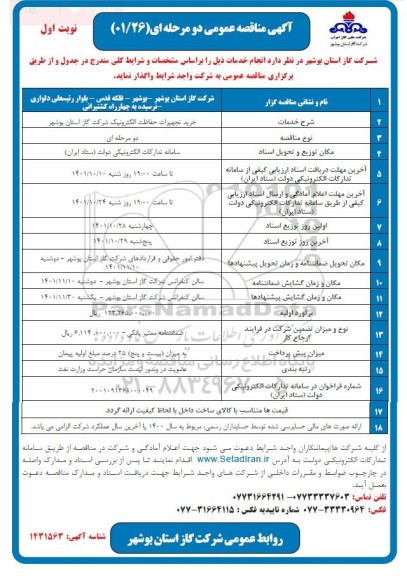 آگهی مناقصه عمومی دو مرحله ای (۰۱/۲۶)
نوبت اول
شرکت گاز استان بوشهر در نظر دارد انجام خدمات ذیل را براساس مشخصات و شرایط کلی مندرج در جدول و از طریق
برگزاری مناقصه عمومی به شرکت واجد شرایط واگذار نماید.
۱ نام و نشانی مناقصه گزار شرکت گاز استان بوشهر – بوشهر – فلکه قدس – بلوار رئیسعلی دلواری
– نرسیده به چهارراه کشتیرانی
۲ شرح خدمات خرید تجهیزات حفاظت الکترونیک شرکت گاز استان بوشهر
۳ نوع مناقصه دو مرحله ای
۴ مکان توزیع و تحویل اسناد سامانه تدارکات الکترونیکی دولت (ستاد ایران)
۵ آخرین مهلت دریافت اسناد ارزیابی کیفی از سامانه
تدارکات الکترونیکی دولت (ستاد ایران)
تا ساعت ۱۹:۰۰ روز شنبه ۱۴۰۱/۱۰/۱۰
۶ آخرین مهلت اعلام آمادگی و ارسال اسناد ارزیابی
کیفی از طریق سامانه تدارکات الکترونیکی دولت
(ستاد ایران)
تا ساعت ۱۹:۰۰ روز شنبه ۱۴۰۱/۱۰/۲۴
۷ اولین روز توزیع اسناد چهارشنبه ۱۴۰۱/۱۰/۲۸
۸ آخرین روز توزیع اسناد پنج‌شنبه ۱۴۰۱/۱۰/۲۹
۹ مکان تحویل ضمانتنامه و زمان تحویل پیشنهادها دفتر امور حقوقی و قراردادهای شرکت گاز استان بوشهر – دوشنبه
۱۰ مکان و زمان گشایش ضمانتنامه سالن کنفرانس شرکت گاز استان بوشهر – دوشنبه ۱۴۰۱/۱۱/۱۰
۱۱ مکان و زمان گشایش پیشنهادها سالن کنفرانس شرکت گاز استان بوشهر – یکشنبه ۱۴۰۱/۱۱/۳۰
۱۲ برآورد اولیه
۱۳ نوع و میزان تضمین شرکت در فرایند
ارجاع کار
ضمانتنامه معتبر بانکی – ۶,۱۱۴,۰۰۰,۰۰۰ ریال
۱۴ میزان پیش پرداخت به میزان (بیست و پنج) ۲۵ درصد مبلغ اولیه پیمان
۱۵ رتبه بندی عضویت در وندور لیست سازمان حراست وزارت نفت
۱۶ شماره فراخوان در سامانه تدارکات الکترونیکی
دولت (ستاد ایران)
۱۷ قیمت ها متناسب با کالای ساخت داخل با لحاظ کیفیت ارائه گردد.
۱۸ ارائه صورت های مالی حسابرسی شده توسط حسابداران رسمی، مربوط به سال ۱۴۰۰ یا آخرین سال عملکرد شرکت الزامی می باشد.
از کلیه شرکت ها/پیمانکاران واجد شرایط دعوت می شود جهت اعلام آمادگی و شرکت در مناقصه از طریق سامانه
تدارکات الکترونیکی دولت به آدرس www.SetadIran.ir اقدام نمایند تا پس از بررسی اسناد و مدارک واصله
در چارچوب ضوابط و مقررات داخلی از شرکت های واجد شرایط جهت دریافت اسناد و مدارک مناقصه دعوت
بعمل آید.
تلفن تماس: ۰۷۷۳۳۳۳۷۶۰۳ – ۰۷۷۳۱۶۶۴۲۹۱
فکس: ۳۳۳۳۰۹۶۴–۰۷۷ شماره تاییدیه فکس: ۳۱۶۶۴۱۱۵–۰۷۷
روابط عمومی شرکت گاز استان بوشهر
شناسه آگهی: ۱۴۳۱۵۶۳